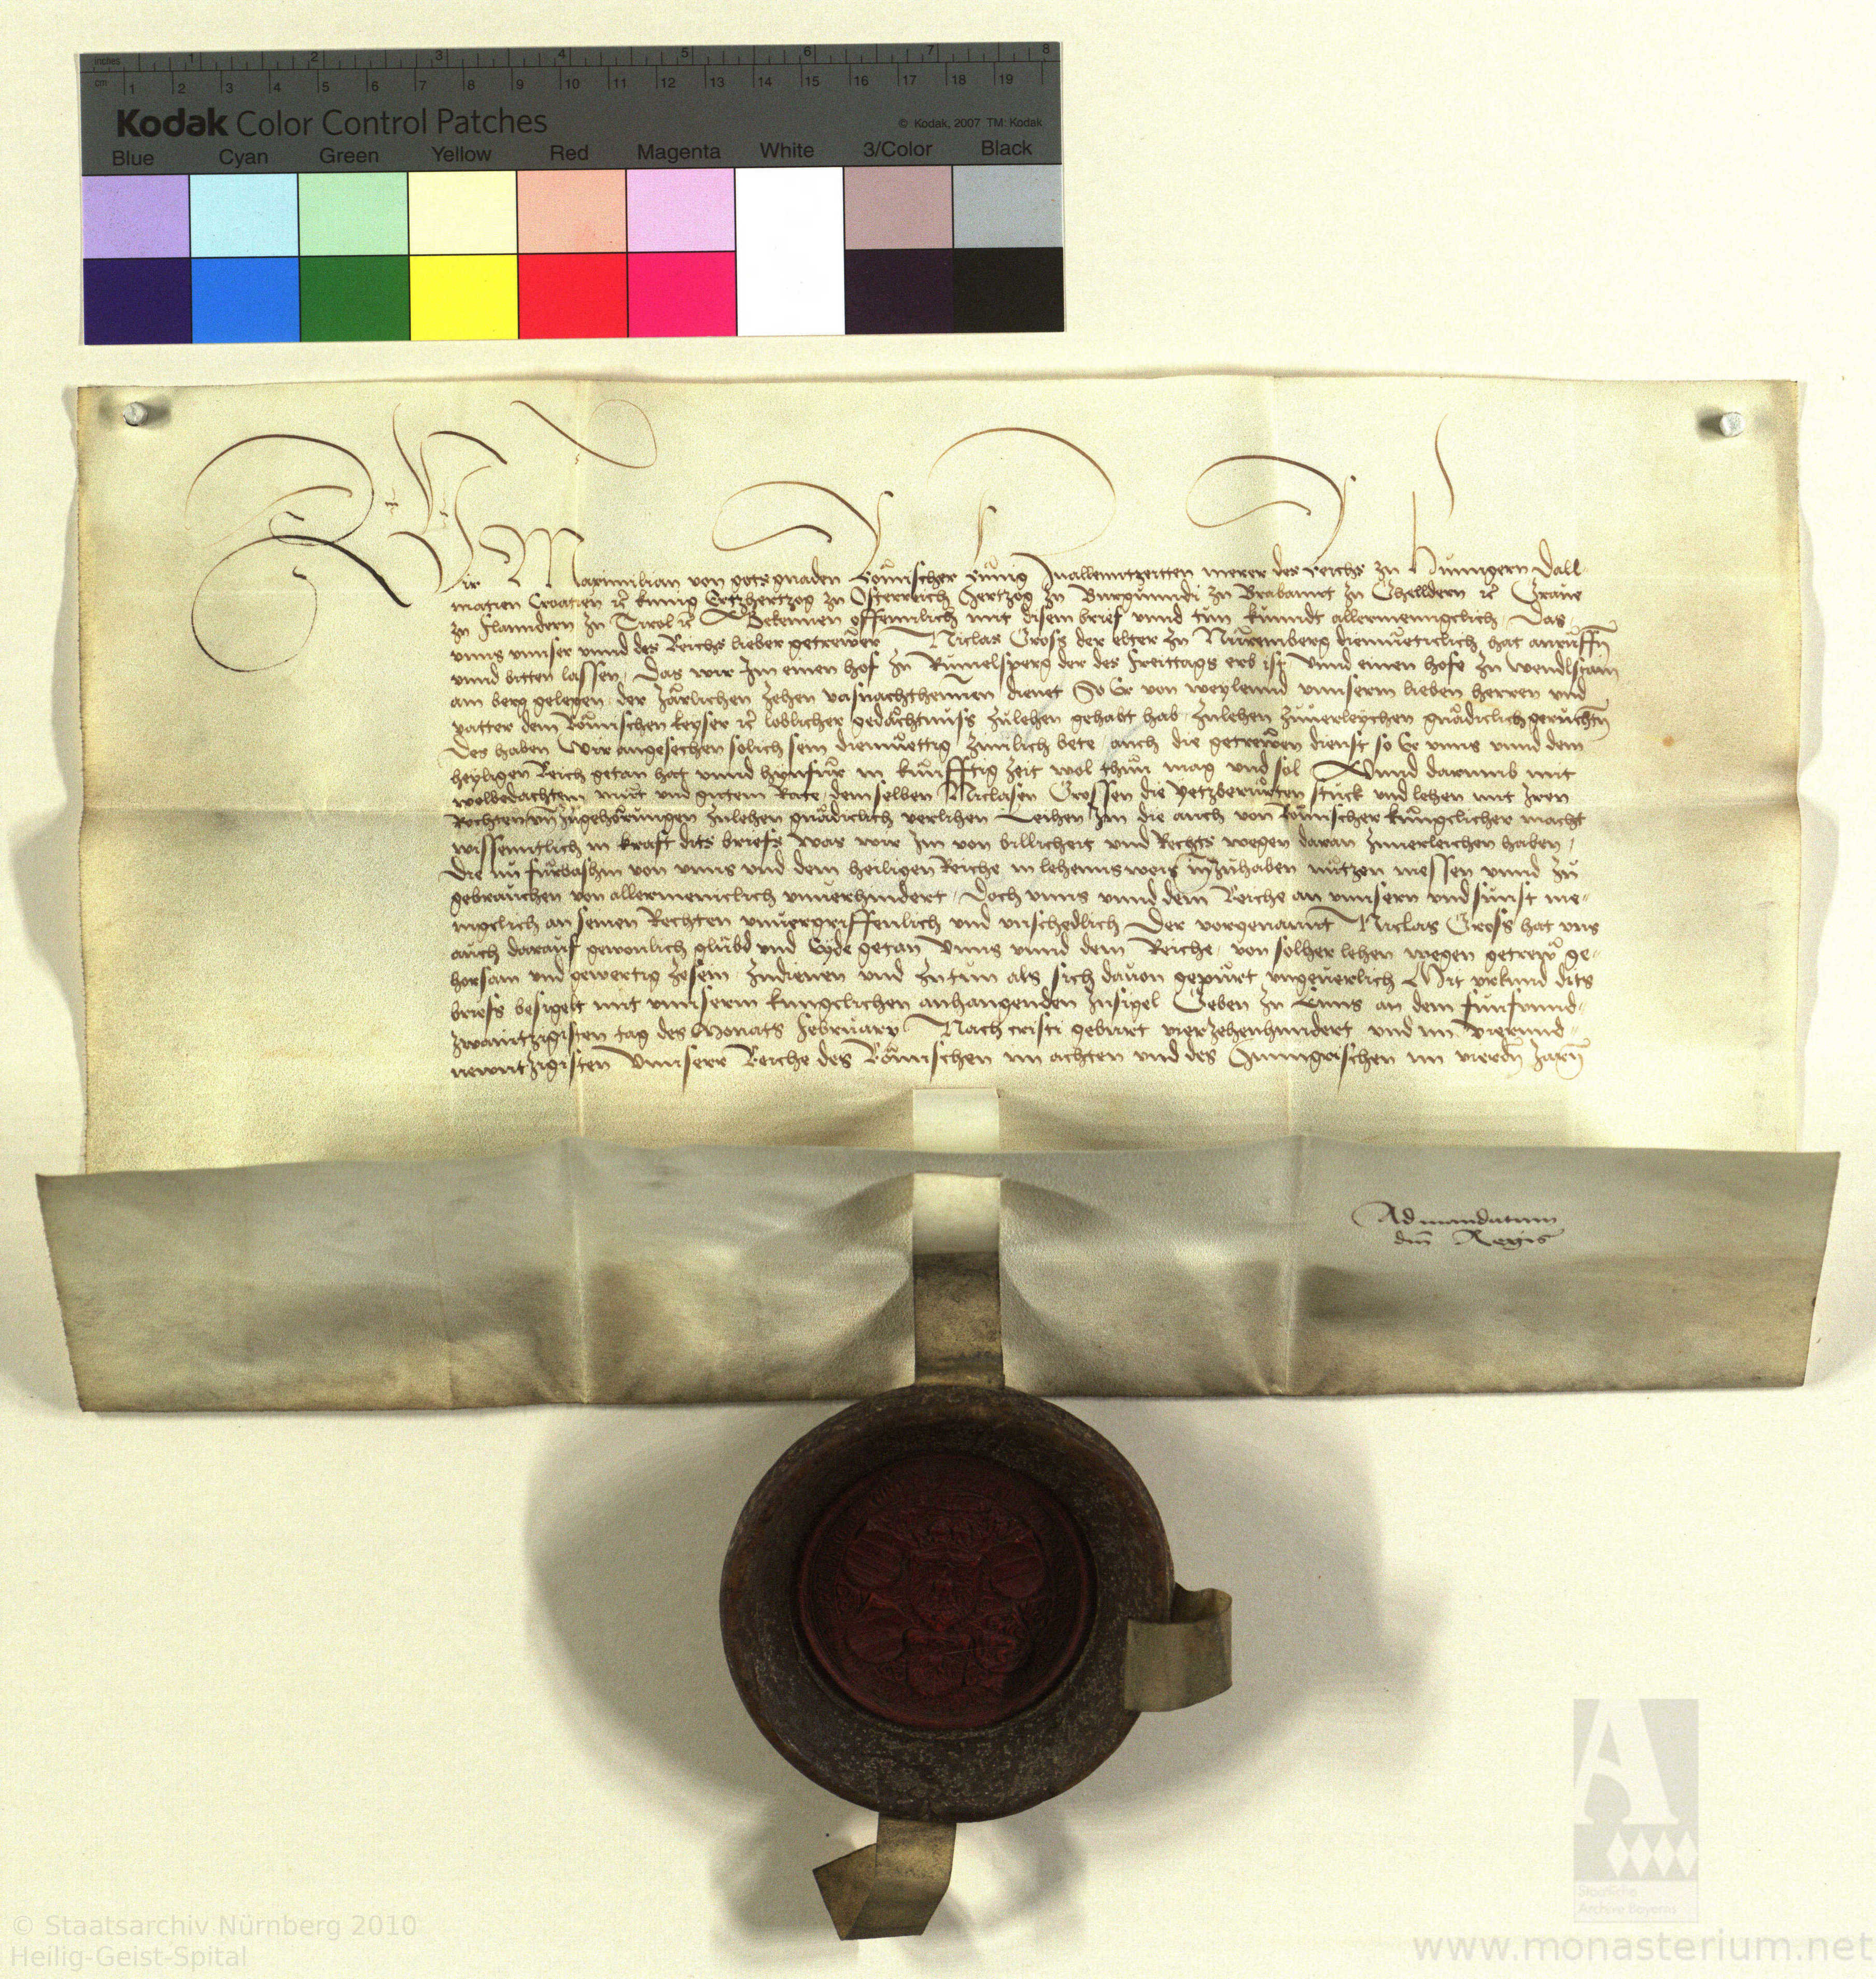 inches 1 2 3 4 5 6 7 8
cm 1 2 3 4 5 6 7 8 9 10 11 12 13 14 15 16 17 18 19
Kodak Color Control Patches
© Kodak, 2007 TM: Kodak
Blue Cyan Green Yellow Red Magenta White 3/Color Black
Wir Maximilian von gots gnaden Römischer Künig Inallenntzeitten merer des reichs zu Hunngern Dall
matien Croatien ꝛc̃ kunig Ertzhertzog zu Österreich Hertzog zu Burgunndi zu Brabannt zu Ghelldern ꝛc̃ Graue
zu Flanndern zu Tirol ꝛc̃ Bekennen offennlich mit disem brief vnnd tun kunndt allermenigclich Das
vnns vnnser vnnd des Reichs lieber getrewer Niclas Gross der elter zu Nůremberg diemueticlich hat anruffñ
vnnd bitten lassen, Das wir Im einen hof zu Rumelsperg der des Freittags erb ist Vnnd einen hofe zu Wendlstain
am berg gelegen, der Järlichen zehen vasnachthennen dienet So Er von weylennd vnnserm lieben herren vnd
vatter dem Römischen keyser ꝛc̃ loblicher gedächtnuss zulehen gehabt hab, zulehen zuuerleychen gnädiclich geruchtñ
Des haben Wir angesechen solich sein diemuettig zimlich bete, auch die getrewen dienst so Er vnns vnnd dem
heyligen Reich getan hat vnnd hynfur in kunfftig zeit wol thun mag vnd sol Vnnd darumb mit
wolbedachtem mut vnd gutem Rate, demselben Niclasen Grossen die yetzberurten stuck vnd lehen mit Iren
Rechten vñ zugehörungen zulehen gnädiclich verlihen Leihen Im die auch von Römischer kunigclicher macht
wissenntlich in kraft dits briefs was wir Im von billicheit vnd Rechts wegen daran zuuerleichen haben,
Die nu furbashin von vnns vnd dem heiligen Reiche in lehennsweis Inzuhaben nutzen niessen vnnd zu
gebrauchen von allermeniclich vnuerhindert, Doch vnns vnnd dem Reiche an vnnsern vnd sunst me-
nigclich an seinen Rechten vnuergriffenlich vnd vnschedlich Der vorgenannt Niclas Gross hat vns
auch darauf gewonlich glubd vnd Eyde getan Vnns vnnd dem Reiche, von solher lehen wegen getrew ge-
horsam vnd gewertig zesein, zudienen vnd zutun als sich dauon gepurt vngeuerlich Mit vrkund dits
briefs besigelt mit vnnserm kunigclichen anhangenden Insigel Geben zu Lynns an dem funfvnnd-
zwaintzigisten tag des Monats February Nach cristi geburt vierzehenhundert vnd im viervnd-
newntzigisten Vnnserr Reiche des Römischen im achten vnd des Hunngrischen im vierdñ Jarñ
Ad mandatum
dm̄ Regis
© Staatsarchiv Nürnberg 2010
Heilig-Geist-Spital
Staatliche
Archive Bayerns
www.monasterium.net